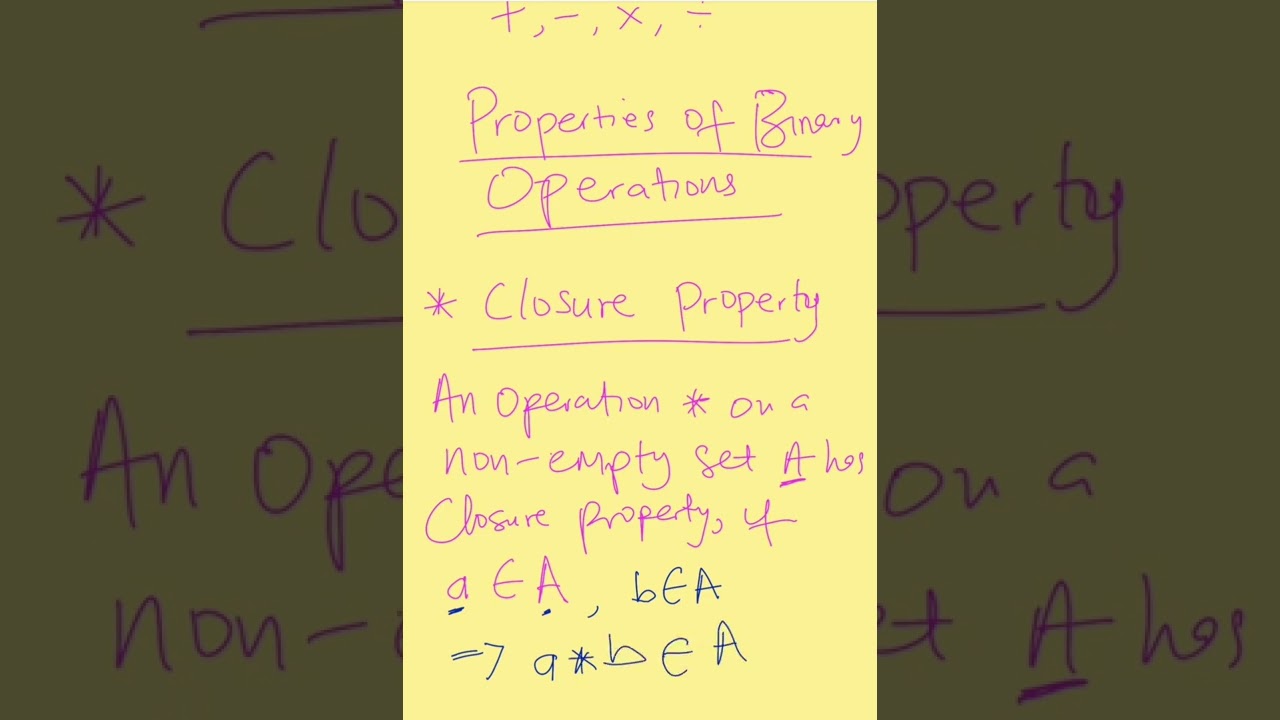 +, -, ×, ÷
Properties of Binary
Operations
* Closure Property
An Operation * on a
non-empty set A has
Closure property, if
a ∈ A, b ∈ A
=> a * b ∈ A